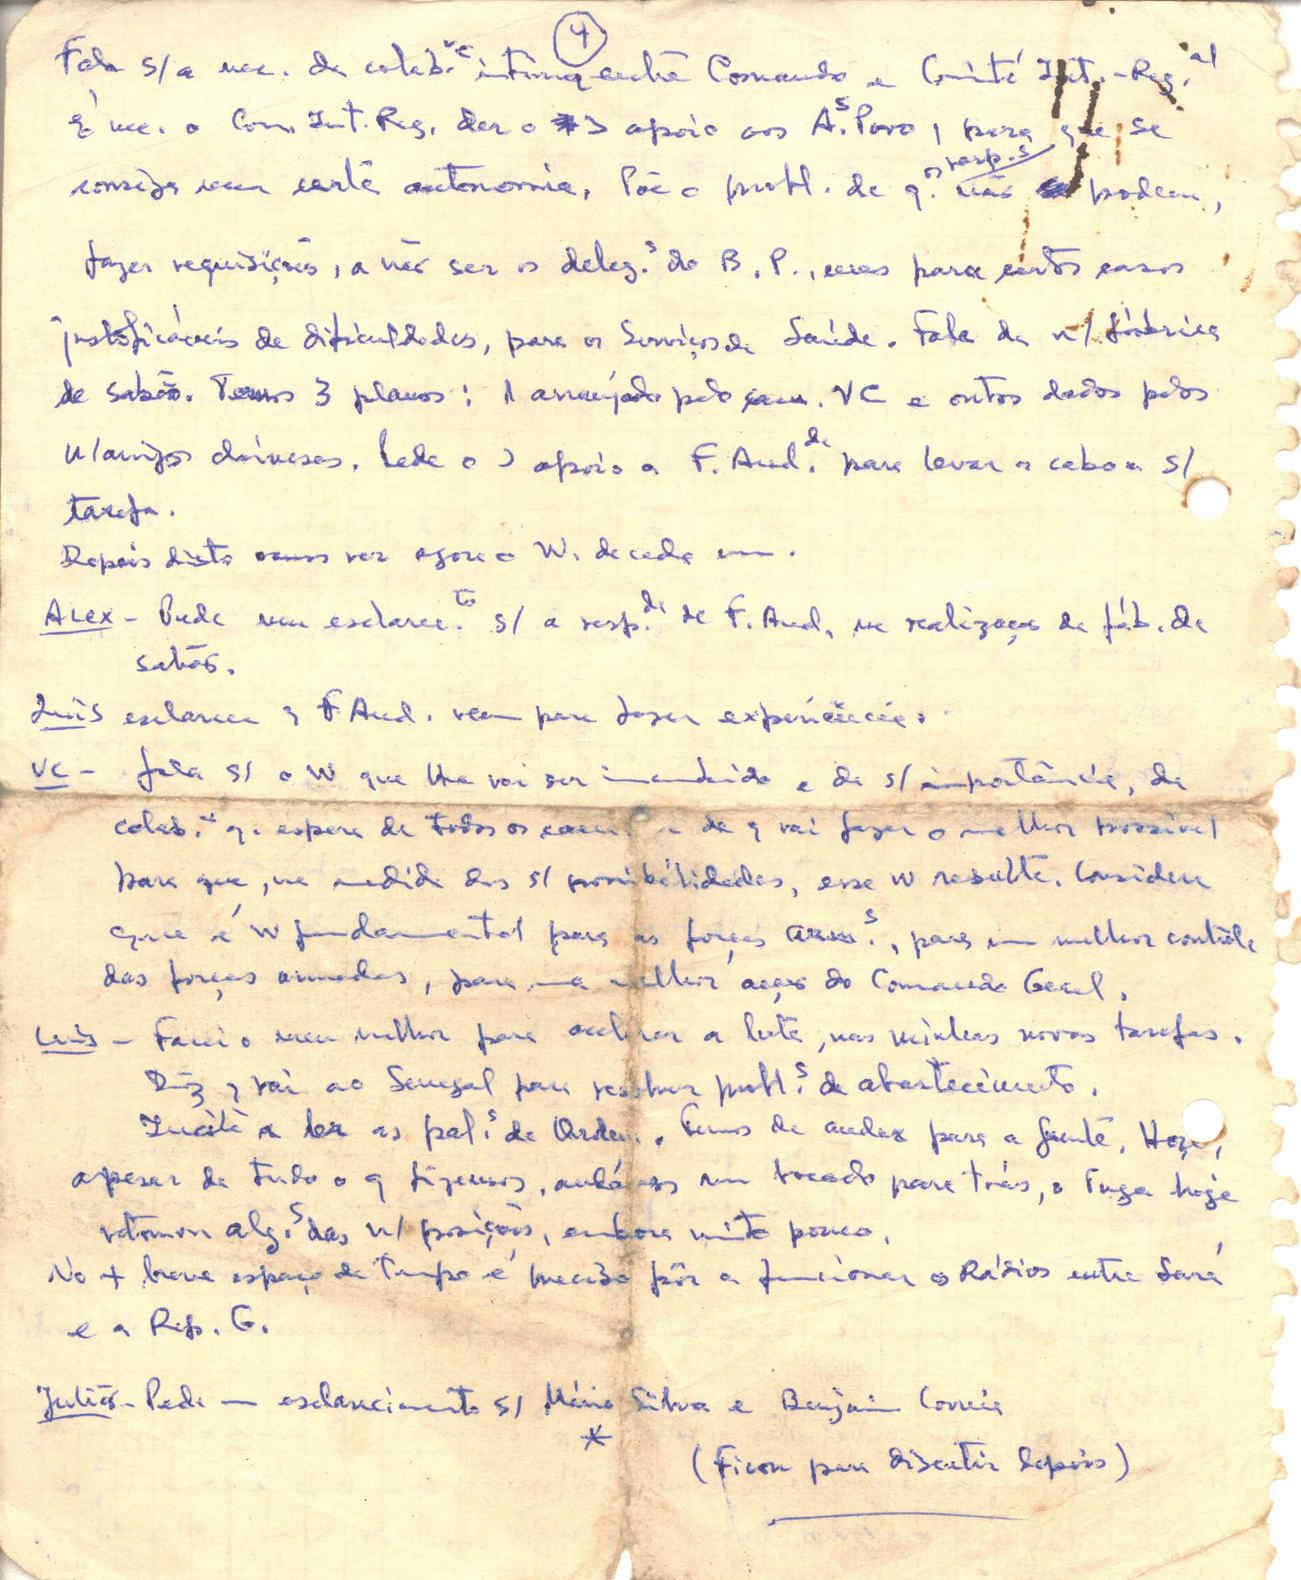 4
Fala s/ a nec. da colab.ção íntima entre Comando e Comité Int.-Reg.al
É nec. o Com. Int. Reg. dar o > apoio aos A.s Povo, para que se
consiga uma certa autonomia. Põe o probl. de q. os resp.s não podem,
fazer requisições, a não ser os deleg.s do B. P., mas para certos casos
justificáveis de dificuldades, para os Serviços de Saúde. Fala da n/ fábrica
de sabão. Temos 3 planos: 1 arranjado pelo cam. VC e outros dados pelos
n/ amigos chineses. Pede o > apoio a F. And.de para levar a cabo a s/
tarefa.
Depois disto vamos ver agora o W. de cada um.
Alex - Pede um esclarec.to s/ a resp.de de F. And. na realização da fáb. de
sabão.
Luís esclarece q F. And. vem para fazer experiências.
VC - fala s/ o W que lhe vai ser incumbido e da s/ importância, da
colab. q. espera de todos os cam. e de q vai fazer o melhor possível
para que, na medida das s/ possibilidades, esse W resulte. Considera
que é W fundamental para as forças arm.s, para um melhor contrôle
das forças armadas, para uma melhor acção do Comando Geral.
Luís - Farei o meu melhor para acelerar a luta, nas minhas novas tarefas.
Diz q vai ao Senegal para resolver probl.s de abastecimento.
Incita a ler as pal.s de Ordem. Temos de andar para a frente. Hoje,
apesar de tudo o q fizemos, andámos um bocado para trás, o Tuga hoje
retomou alg.s das n/ posições, embora muito pouco.
No + breve espaço de tempo é preciso pôr a funcionar os Rádios entre Sará
e a Rep. G.
Julião - Pede um esclarecimento s/ Mário Silva e Benjamim Correia
*
(Ficou para discutir depois)